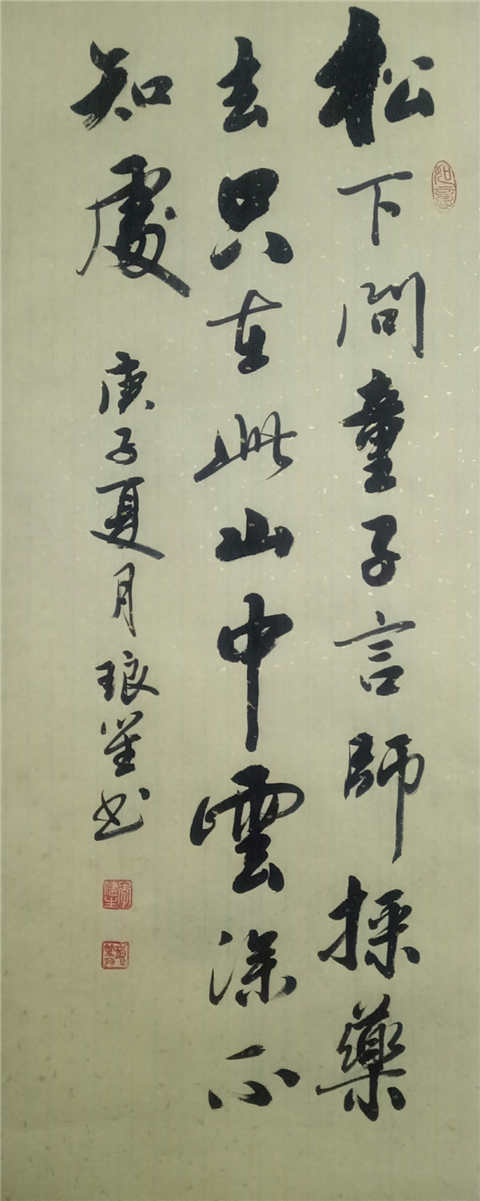 松下問童子言師採藥
去只在此山中雲深不
知處
庚子夏月琅書